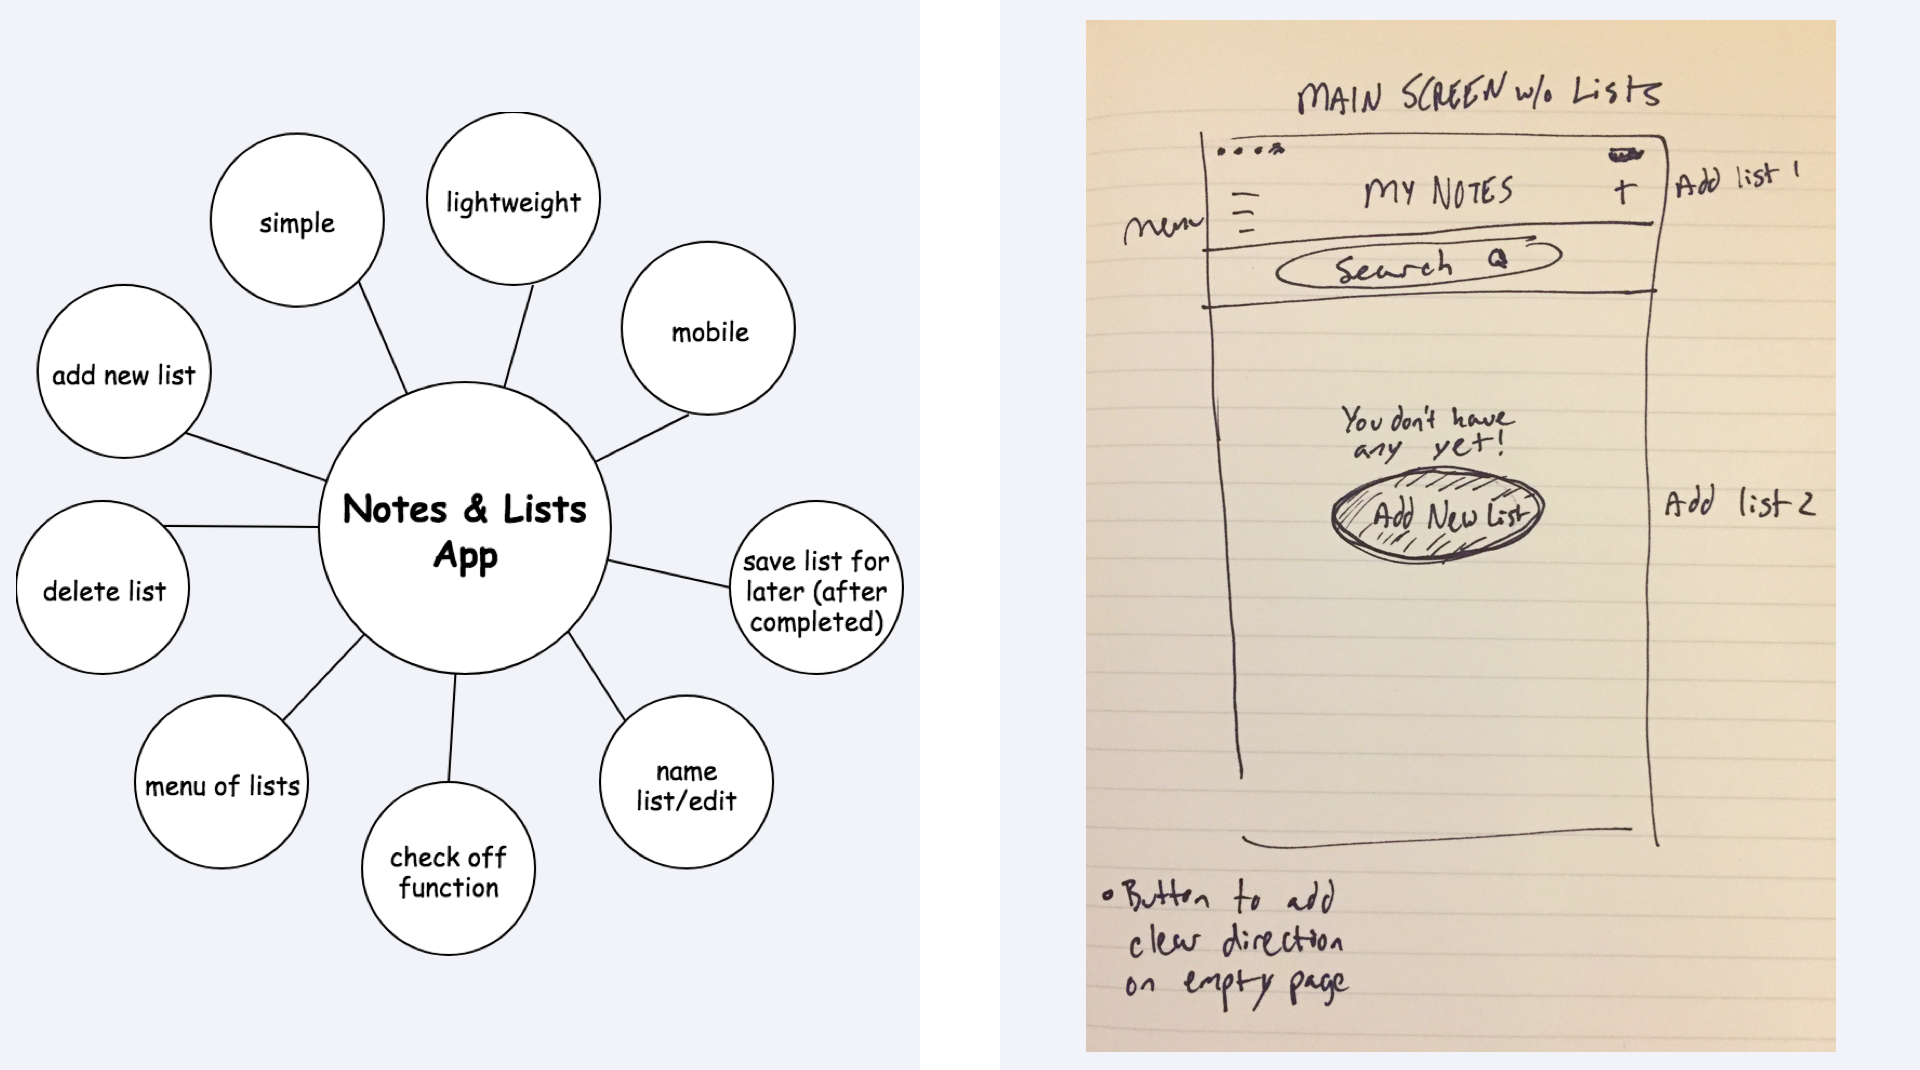 simple
lightweight
mobile
add new list
Notes & Lists
App
save list for
later (after
completed)
delete list
menu of lists
name
list/edit
check off
function
MAIN SCREEN w/o Lists
MY NOTES
+
Add list 1
menu
Search
You don't have
any yet!
Add New List
Add list 2
• Button to add
clear direction
on empty page